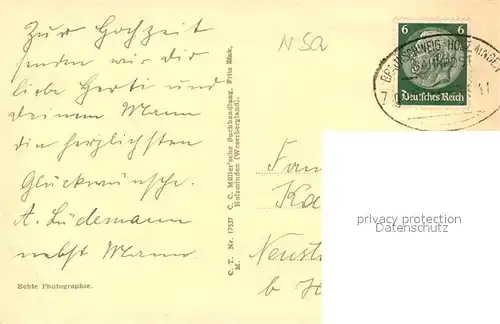 Zur Hochzeit
senden wir dir
liebe Gerti und
deinem Mann
die herzlichsten
Glückwünsche.
A. Lüdemann
nebst Mann.
Echte Photographie.
C. T. Nr. 17537 C. C. Müller'sche Buchhandlung, Fritz
M. Holzminden (Weserbergland).
N 5a
6 6
Deutsches Reich
BRAUNSCHWEIG-HOLZMINDE
BAHNPOST
Fam
Ka
Neust
b H
privacy protection
Datenschutz